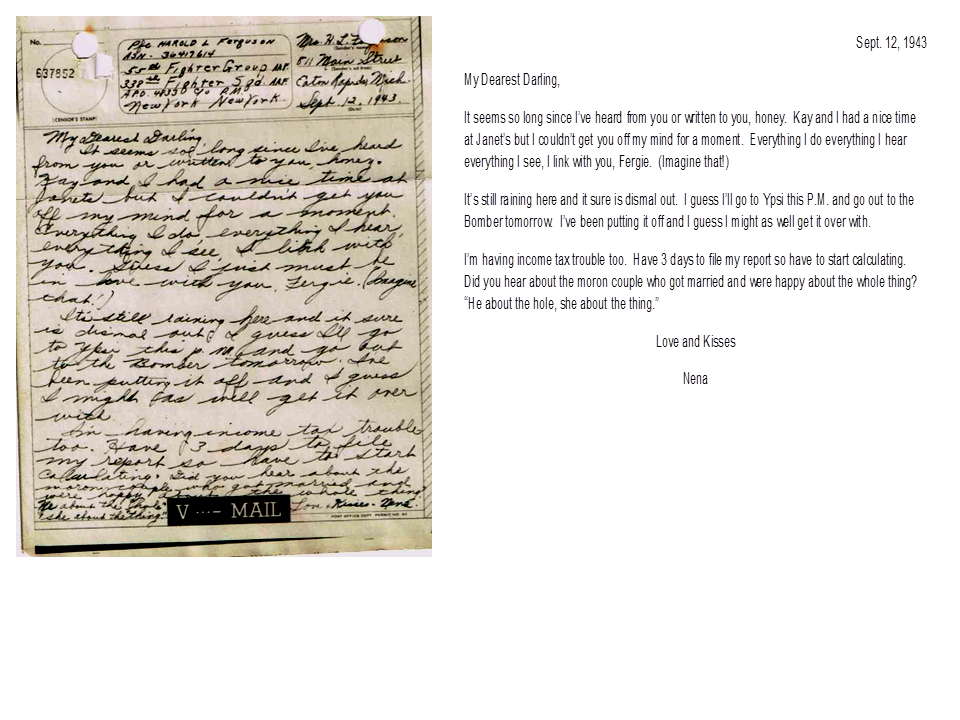 No.
637852
(CENSOR'S STAMP)
Pfc. HAROLD L Ferguson
ASN. 36417614
55th Fighter Group AAF.
338th Fighter Sqd. AAF
A.P.O. C/o P.M.
New York New York.
Mrs. H.L. Ferguson
(Sender's name)
511 Main Street
(Sender's address)
Eaton Rapids, Mich.
Sept. 12, 1943.
(Date)
My Dearest Darling,
It seems so long since I've heard
from you or written to you, honey.
Kay and I had a nice time at
Janets but I couldn't get you
off my mind for a moment.
Everything I do everything I hear,
everything I see, I link with
you. Guess I just must be
in love with you, Fergie. (Imagine
that!)
It's still raining here and it sure
is dismal out. I guess I'll go
to Ypsi this p.m. and go out
to the Bomber tomorrow. I've
been putting it off and I guess
I might as well get it over
with.
I'm having income tax trouble
too. Have 3 days to file
my report so have to start
calculating. Did you hear about the
moron couple who got married and
were happy about the whole thing
He about the hole
she about the thing"
Love & Kisses - Nena.
V ···– MAIL
POST OFFICE DEPT. PERMIT NO.
Sept. 12, 1943
My Dearest Darling,
It seems so long since I've heard from you or written to you, honey. Kay and I had a nice time
at Janet's but I couldn't get you off my mind for a moment. Everything I do everything I hear
everything I see, I link with you, Fergie. (Imagine that!)
It's still raining here and it sure is dismal out. I guess I'll go to Ypsi this P.M. and go out to the
Bomber tomorrow. I've been putting it off and I guess I might as well get it over with.
I'm having income tax trouble too. Have 3 days to file my report so have to start calculating.
Did you hear about the moron couple who got married and were happy about the whole thing?
"He about the hole, she about the thing."
Love and Kisses
Nena